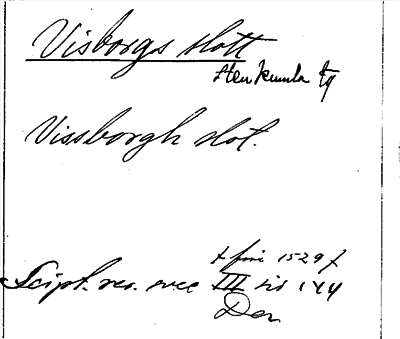 Visborgs slott
Stenkumla tg
Vissborgh slot.
1529
Script. rer. svec III sid 144